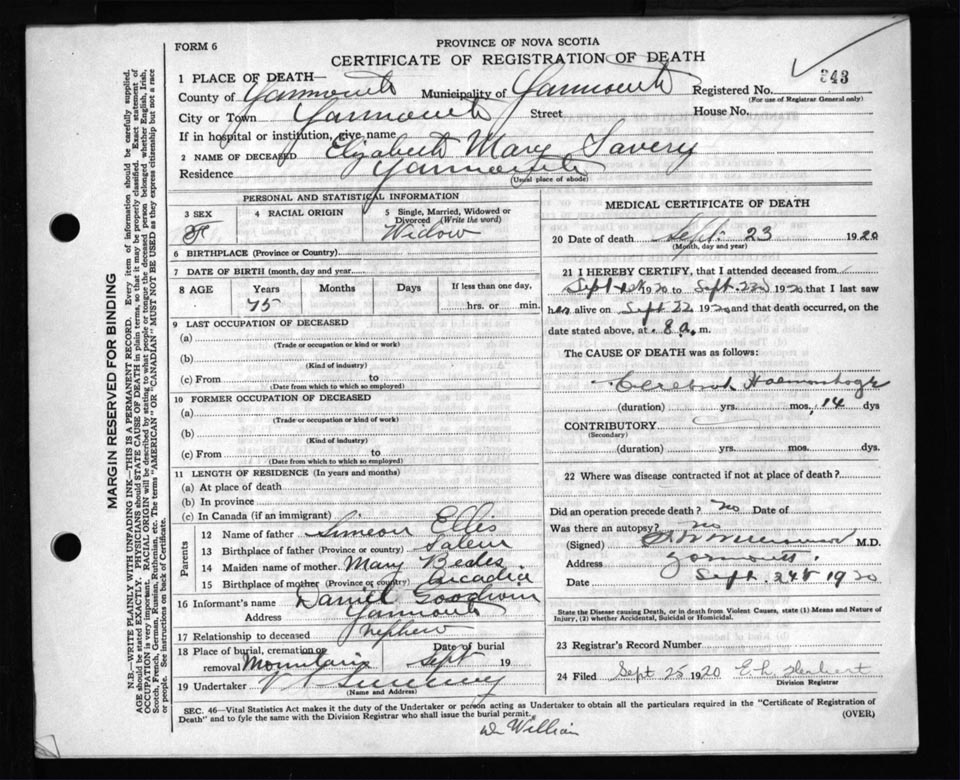 FORM 6
PROVINCE OF NOVA SCOTIA
CERTIFICATE OF REGISTRATION OF DEATH
343
1 PLACE OF DEATH—
County of Yarmouth Municipality of Yarmouth Registered No.
(For use of Registrar General only)
City or Town Yarmouth Street House No.
If in hospital or institution, give name
2 NAME OF DECEASED Elizabeth Mary Savery
Residence Yarmouth
(Usual place of abode)
PERSONAL AND STATISTICAL INFORMATION
3 SEX 4 RACIAL ORIGIN 5 Single, Married, Widowed or Divorced (Write the word)
F Widow
6 BIRTHPLACE (Province or Country)
7 DATE OF BIRTH (month, day and year)
8 AGE Years Months Days If less than one day,
75 hrs. or min.
9 LAST OCCUPATION OF DECEASED
(a)
(Trade or occupation or kind or work)
(b)
(Kind of industry)
(c) From to
(Date from which to which so employed)
10 FORMER OCCUPATION OF DECEASED
(a)
(Trade or occupation or kind of work)
(b)
(Kind of industry)
(c) From to
(Date from which to which so employed)
11 LENGTH OF RESIDENCE (In years and months)
(a) At place of death
(b) In province
(c) In Canada (if an immigrant)
Parents
12 Name of father Simeon Ellis
13 Birthplace of father (Province or country) Salem
14 Maiden name of mother Mary Beales
15 Birthplace of mother (Province or country) Arcadia
16 Informant's name Daniel Goodwin
Address Yarmouth
17 Relationship to deceased nephew
18 Place of burial, cremation or removal Mountain Date of burial Sept 19
19 Undertaker V Sweeney
(Name and Address)
MEDICAL CERTIFICATE OF DEATH
20 Date of death Sept. 23 1920
(Month, day and year)
21 I HEREBY CERTIFY, that I attended deceased from
Sept 1920 to Sept. 22 1920 that I last saw
her alive on Sept 22 1920 and that death occurred, on the
date stated above, at 8 a. m.
The CAUSE OF DEATH was as follows:
Cerebral Haemorrhage
(duration) yrs. mos. 14 dys
CONTRIBUTORY
(Secondary)
(duration) yrs. mos. dys.
22 Where was disease contracted if not at place of death?
Did an operation precede death? no Date of
Was there an autopsy? no
(Signed) M.D.
Address Yarmouth
Date Sept. 24th 1920
State the Disease causing Death, or in death from Violent Causes, state (1) Means and Nature of
Injury, (2) whether Accidental, Suicidal or Homicidal.
23 Registrar's Record Number
24 Filed Sept 25 1920 E. L. Herbert
Division Registrar
SEC. 46—Vital Statistics Act makes it the duty of the Undertaker or person acting as Undertaker to obtain all the particulars required in the "Certificate of Registration of
Death" and to fyle the same with the Division Registrar who shall issue the burial permit. (OVER)
Dr Willian
MARGIN RESERVED FOR BINDING
N.B.—WRITE PLAINLY WITH UNFADING INK—THIS IS A PERMANENT RECORD. Every item of information should be carefully supplied.
AGE should be stated EXACTLY. PHYSICIANS should STATE CAUSE OF DEATH in plain terms, so that it may be properly classified. Exact statement of
OCCUPATION is very important. RACIAL ORIGIN will be described by stating to what people or tongue the deceased person belonged whether English, Irish,
Scotch, French, German, Russian, Ruthenian, etc. The terms "AMERICAN" OR "CANADIAN" MUST NOT BE USED as they express citizenship but not a race
or people. See instructions on back of Certificate.